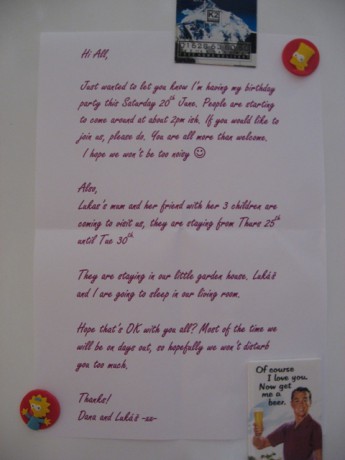 Hi All,
Just wanted to let you know I'm having my birthday
party this Saturday 20th June. People are starting
to come around at about 2pm ish. If you would like to
join us, please do. You are all more than welcome.
I hope we won't be too noisy ☺
Also,
Lukas's mum and her friend with her 3 children are
coming to visit us, they are staying from Thurs 25th
until Tue 30th
They are staying in our little garden house. Lukáš
and I are going to sleep in our living room.
Hope that's OK with you all? Most of the time we
will be on days out, so hopefully we won't disturb
you too much.
Thanks!
Dana and Lukáš -xx-
Of course
I love you.
Now get
me a
beer.